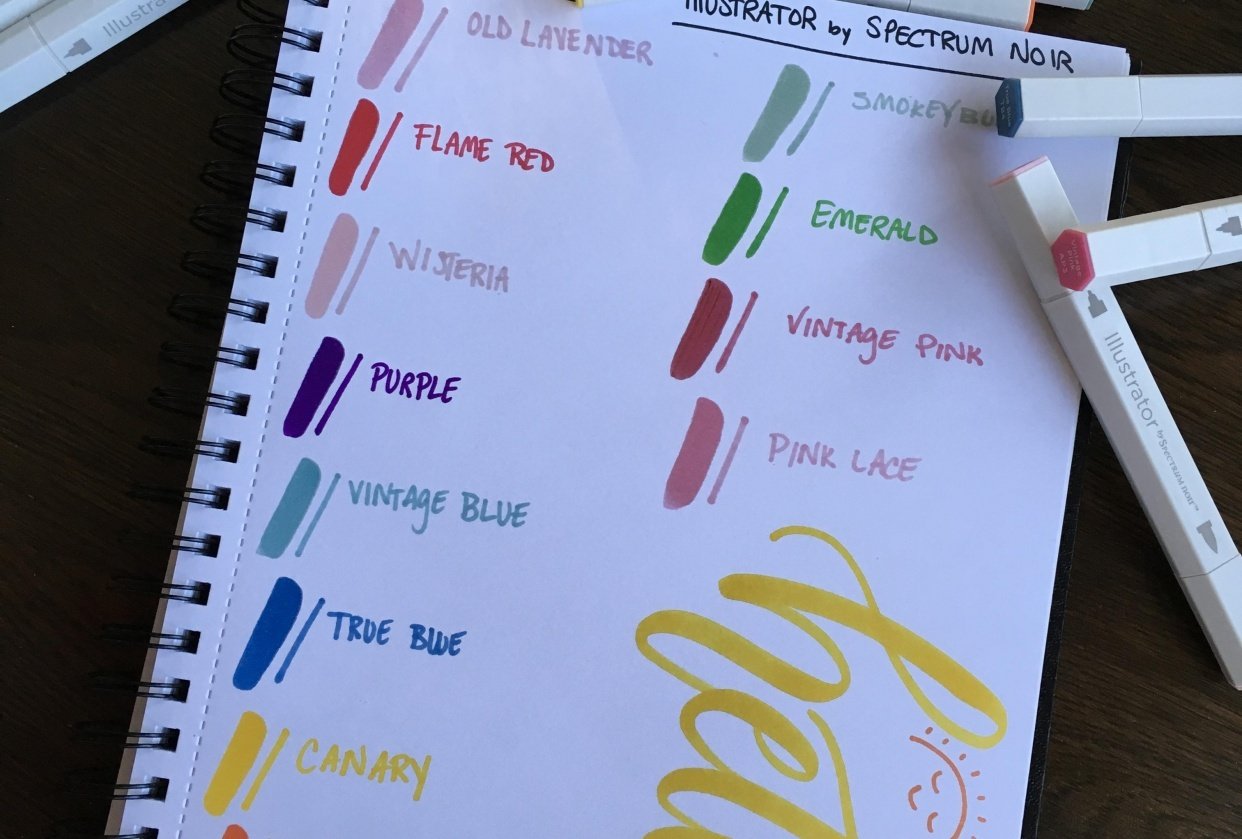 ILLUSTRATOR by SPECTRUM NOIR
OLD LAVENDER
FLAME RED
WISTERIA
PURPLE
VINTAGE BLUE
TRUE BLUE
CANARY
SMOKEY
EMERALD
VINTAGE PINK
PINK LACE
Illustrator
Illustrator by SPECTRUM NOIR™
Vintage
Pink